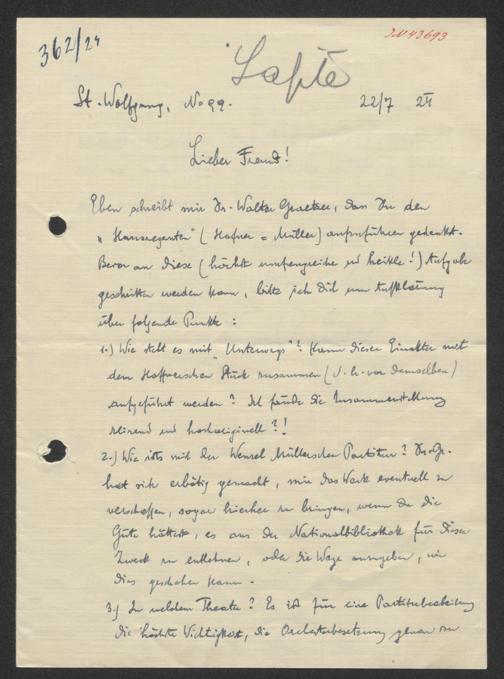 362/24
JN 43693
St. Wolfgang, No 99. 22/7 24
Lieber Freund!
Eben schreibt mir Dr. Walter , dass Du den
" " (Hafner = Müller) aufzuführen gedenkst.
Bevor an diese (höchst umfangreiche und heikle!) Aufgabe
geschritten werden kann, bitte ich Dich um Aufklärung
über folgende Punkte:
1.) Wie steht es mit "Unterwegs"? Kann dieser Einakter mit
dem Hafnerschen Stück zusammen (d. h. vor demselben)
aufgeführt werden? Ich fände die Zusammenstellung
und hochoriginell?!
2.) Wie ists mit der Wenzel Müllerschen Partitur? Dr. Gr.
hat sich erbötig gemacht, mir das Werk eventuell zu
verschaffen, sogar hierher zu bringen, wenn Du die
Güte hättest, es aus der Nationalbibliothek für diesen
Zweck zu entlehnen, oder die Wege anzugeben, wie
dies geschehen kann.
3.) In welchem Theater? Es ist für eine Partiturbearbeitung
die höchste Wichtigkeit, die Orchesterbesetzung genau zu